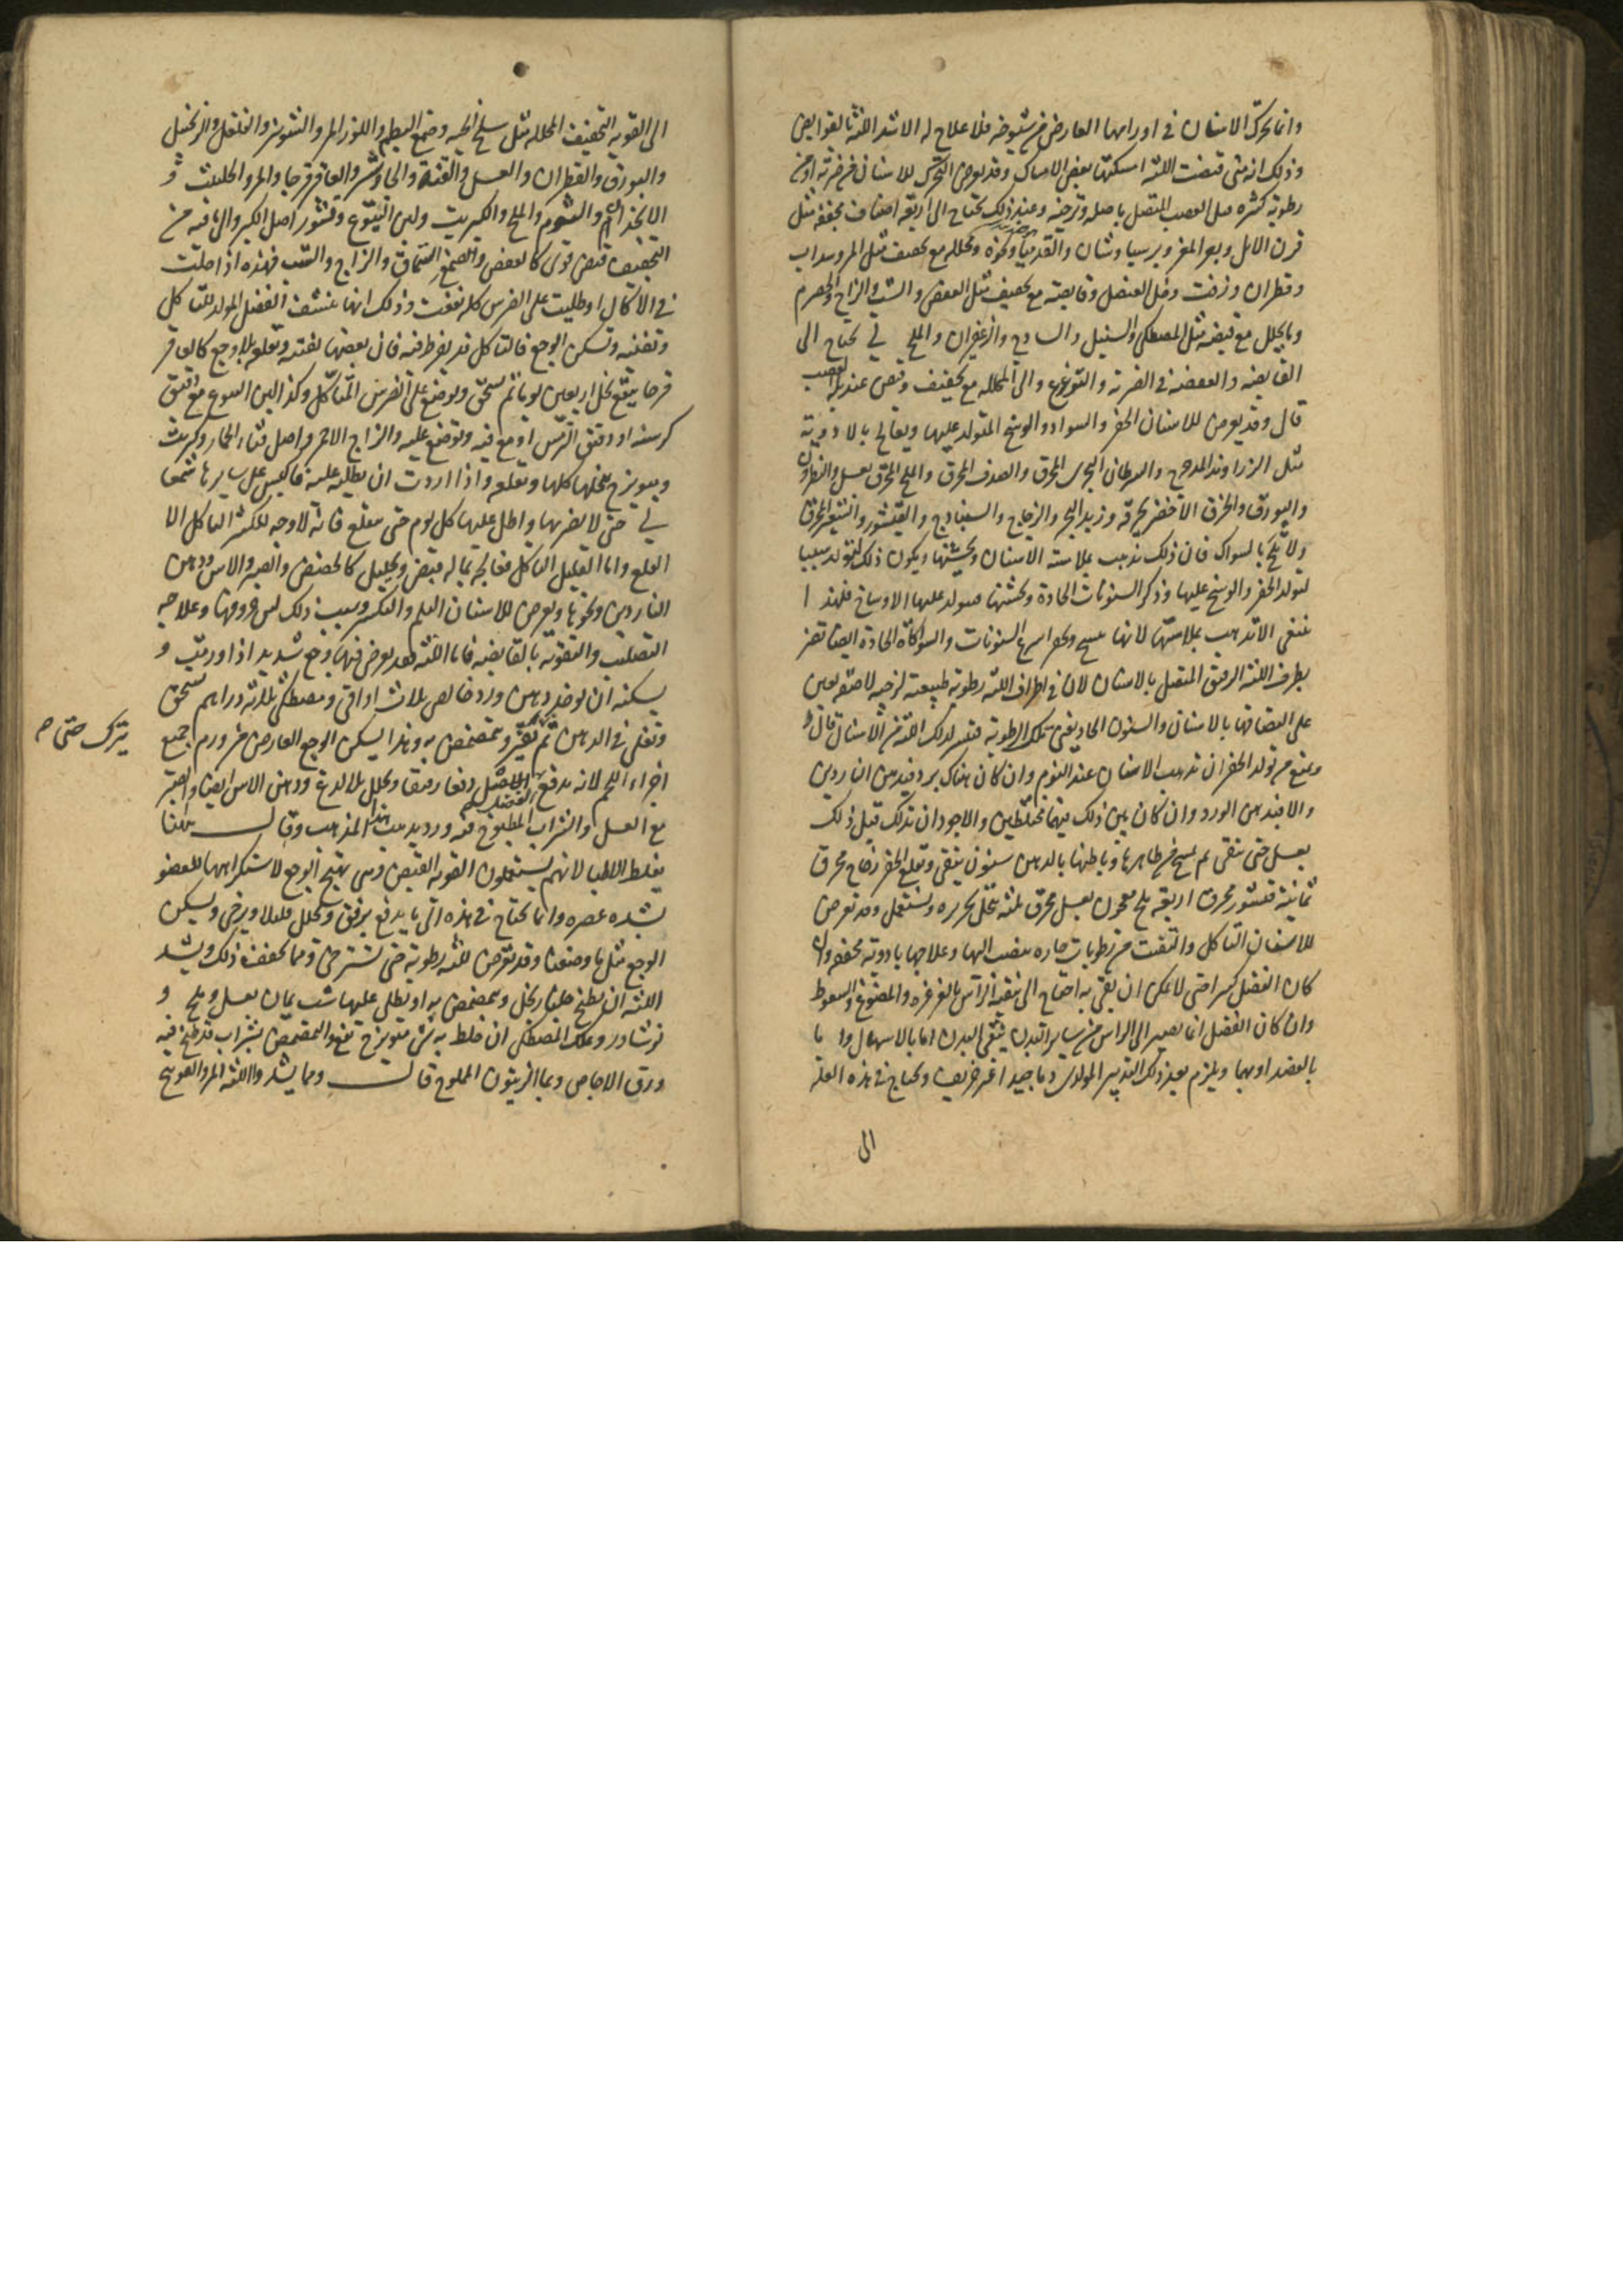 وانما تحرك الاسنان في اورامها العارض من شيوخه فلا علاج له الا شد اللثة بالقوابض
وذلك انه متى قبضت اللثة امسكتها بعض الامساك وقد يعرض التحرك للاسنان من ضربة او من
رطوبة كثيرة تبل العصب المتصل باصله وترخيه وعند ذلك يحتاج الى اربعة اصناف مجففة مثل
قرن الايل وبعر المعز وبرسياوشان والقدميا ونحوه ومحللة مع تجفيف مثل المر وسداب
وقطران وزفت وخل العنصل وقابضة مع تجفيف مثل العفص والشب والزاج والحصرم
وما يحلل مع قبضه مثل المصطكى والسنبل والسادج والزعفران والملح لي يحتاج الى
القابضه والعفصه في الضربة والتزعزع والى المحللة مع تجفيف وقبض عند بلة العصب
قال وقد يعرض للاسنان الحفر والسواد والوسخ المتولد عليها ويعالج بالادوية
مثل الزراوند المدحرج والسرطان البحرى المحرق والصدف المحرق والملح المحرق بعسل والنطرون
والبورق والخزف الاخضر يحرقه وزبد البحر والزجاج والسنبادج والقيشور والشعير المحرق
ولا تلح بالسواك فان ذلك يذهب بملاسة الاسنان ويخشنها ويكون ذلك سببا
لتولد الحفر والوسخ عليها وذكر السنونات الحادة وتخشنها فيتولد عليها الاوساخ فلهذا
ينبغى الا تذهب بملاستها لانها تتسخ وتحفر اسرع السنونات والسواكاة الحادة ايضا تضر
بطرف اللثة الرقيق المتصل بالاسنان لان في اطراف اللثة رطوبة طبيعية لزجة لاصقة تعين
على التصاقها بالاسنان والسنون الحاد يفنى تلك الرطوبة فتتبرا لذلك اللثة من الاسنان قال و
ويمنع من تولد الحفر ان تدهن الاسنان عند النوم وان كان هناك برد فبدهن الناردين
والا فبدهن الورد وان كان بين ذلك فبهما مختلطين والاجود ان تدلك قبل ذلك
بعسل حتى تنقى ثم تمسح من ظاهرها وباطنها بالدهن سنون ينقى ويقلع الحفر زجاج محرق
ثمانية قيشور محرق اربعة ملح معجون بعسل محرق ثلثة ينخل بحريره ويستعمل وقد تعرض
للاسنان التاكل والتفتت من رطوبات حاره تنصب اليها وعلاجها بادوية مجففه وان
كان الفضل كثيرا حتى لا يمكن ان يفى به احتاج الى تنقية الراس بالغرغره والمضوغ والسعوط
وان كان الفضل انما يصير الى الراس من ساير البدن ينقى البدن اما بالاسهال واما
بالفصد او بهما ويلزم بعد ذلك التدبير المولد دما جيدا غير حريف ويحتاج في هذه العلة
الى
الى القوية التجفيف المحللة مثل سلخ الحية وصمغ البطم واللوز المر والشونيز والفلفل والزنجبيل
والبورق والقطران والعسل والقنة والجاوشير والعاقر قرحا والمر والحلتيت و
الانجذان والثوم والملح والكبريت ولبن اليتوع وقشور اصل الكبر والى ما فيه من
التجفيف قبض قوى كالعفص والصمغ السماق والزاج والشب فهذه اذا جعلت
في الاكال او طليت على الضرس كله نفعت وذلك انها تنشف الفضل المولد للتاكل
وتفنيه وتسكن الوجع فالتاكل قد يفرط فيه فان بعضها تفتته وتقلعه بلا وجع كالعاقر
قرحا ينقع بخل اربعين يوما ثم يسحق ويوضع على الضرس المتاكل وكذا لبن اليتوع مع دقيق
كرسنه او دقيق الترمس او مع قنه ويوضع عليه والزاج الاحمر واصل قثاء الحمار وكبريت
وميويزج بخلها كلها وتقلع واذا اردت ان تطليه عليه فالبس على سايرها شمعا
لي حتى لا يضر بها واطل عليها كل يوم حتى يقلع فانه لا وجه للكثير التاكل الا
القلع واما القليل التاكل فعالجه بما له قبض وتحليل كالحضض والصبر والاس ودهن
الناردين ونحوها ويعرض للاسنان الثلم والتكسر وسبب ذلك لين جرمها وعلاجه
التصليب والتقوية بالقابضه فاما اللثه فقد يعرض فيها وجع شديد اذا ورمت و
يسكنه ان يوخذ دهن ورد خالص ثلاث اواقى ومصطكى ثلاثة دراهم يسحق
وتغلى في الدهن ثم يترك حتى يفتر ويتمضمض به وهذا يسكن الوجع العارض من ورم جميع
اجزاء الفم لانه يدفع الفضل دفعا رفيقا ويحلل بلا لذع ودهن الاس ايضا والصبر
مع العسل والشراب المطبوخ فيه ورد يذهب هذا المذهب وقال
يغلط الاطبا لانهم يستعملون القوية القبض وهى تهيج الوجع لاستكراهها للعضو
بشده عصره وانما يحتاج في هذه الى ما يدفع برفق ويحلل قليلا ويرخى ويسكن
الوجع مثل ما وصفت وقد تعرض للثه رطوبة حتى تسترخى ومما يجفف ذلك ويشد
اللثه ان يطبخ جلنار بخل ويتمضمض به او يطلى عليها شب يمان بعسل وملح و
نوشادر وعلك المصطكى ان خلط به شئ ميويزج نفع والمضمضة بشراب قد طبخ فيه
ورق الاجاص وبما الزيتون المملوح قال ومما يشد اللثه المر والفوتنج
يترك حتى